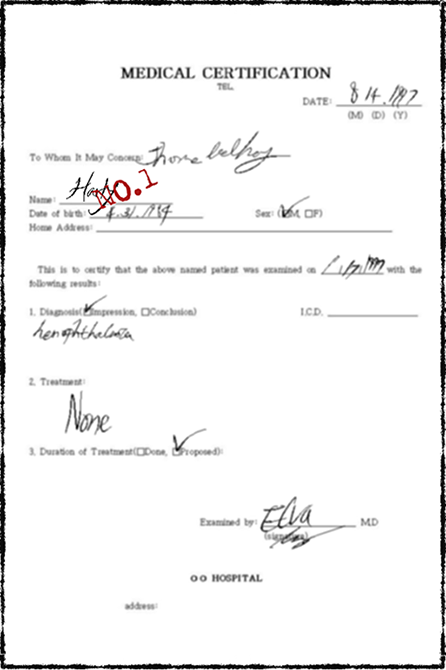 MEDICAL CERTIFICATION
TEL.
DATE: 8 14. 1997
(M) (D) (Y)
To Whom It May Concern:
Name: Hady NO.1
Date of birth: 4.31.1954
Sex: (☑M, □F)
Home Address:
This is to certify that the above named patient was examined on with the
following results:
1. Diagnosis(☑Impression, □Conclusion) I.C.D.
2. Treatment:
None
3. Duration of Treatment(□Done, ☑Proposed):
Examined by: Elva M.D
(signature)
OO HOSPITAL
address: